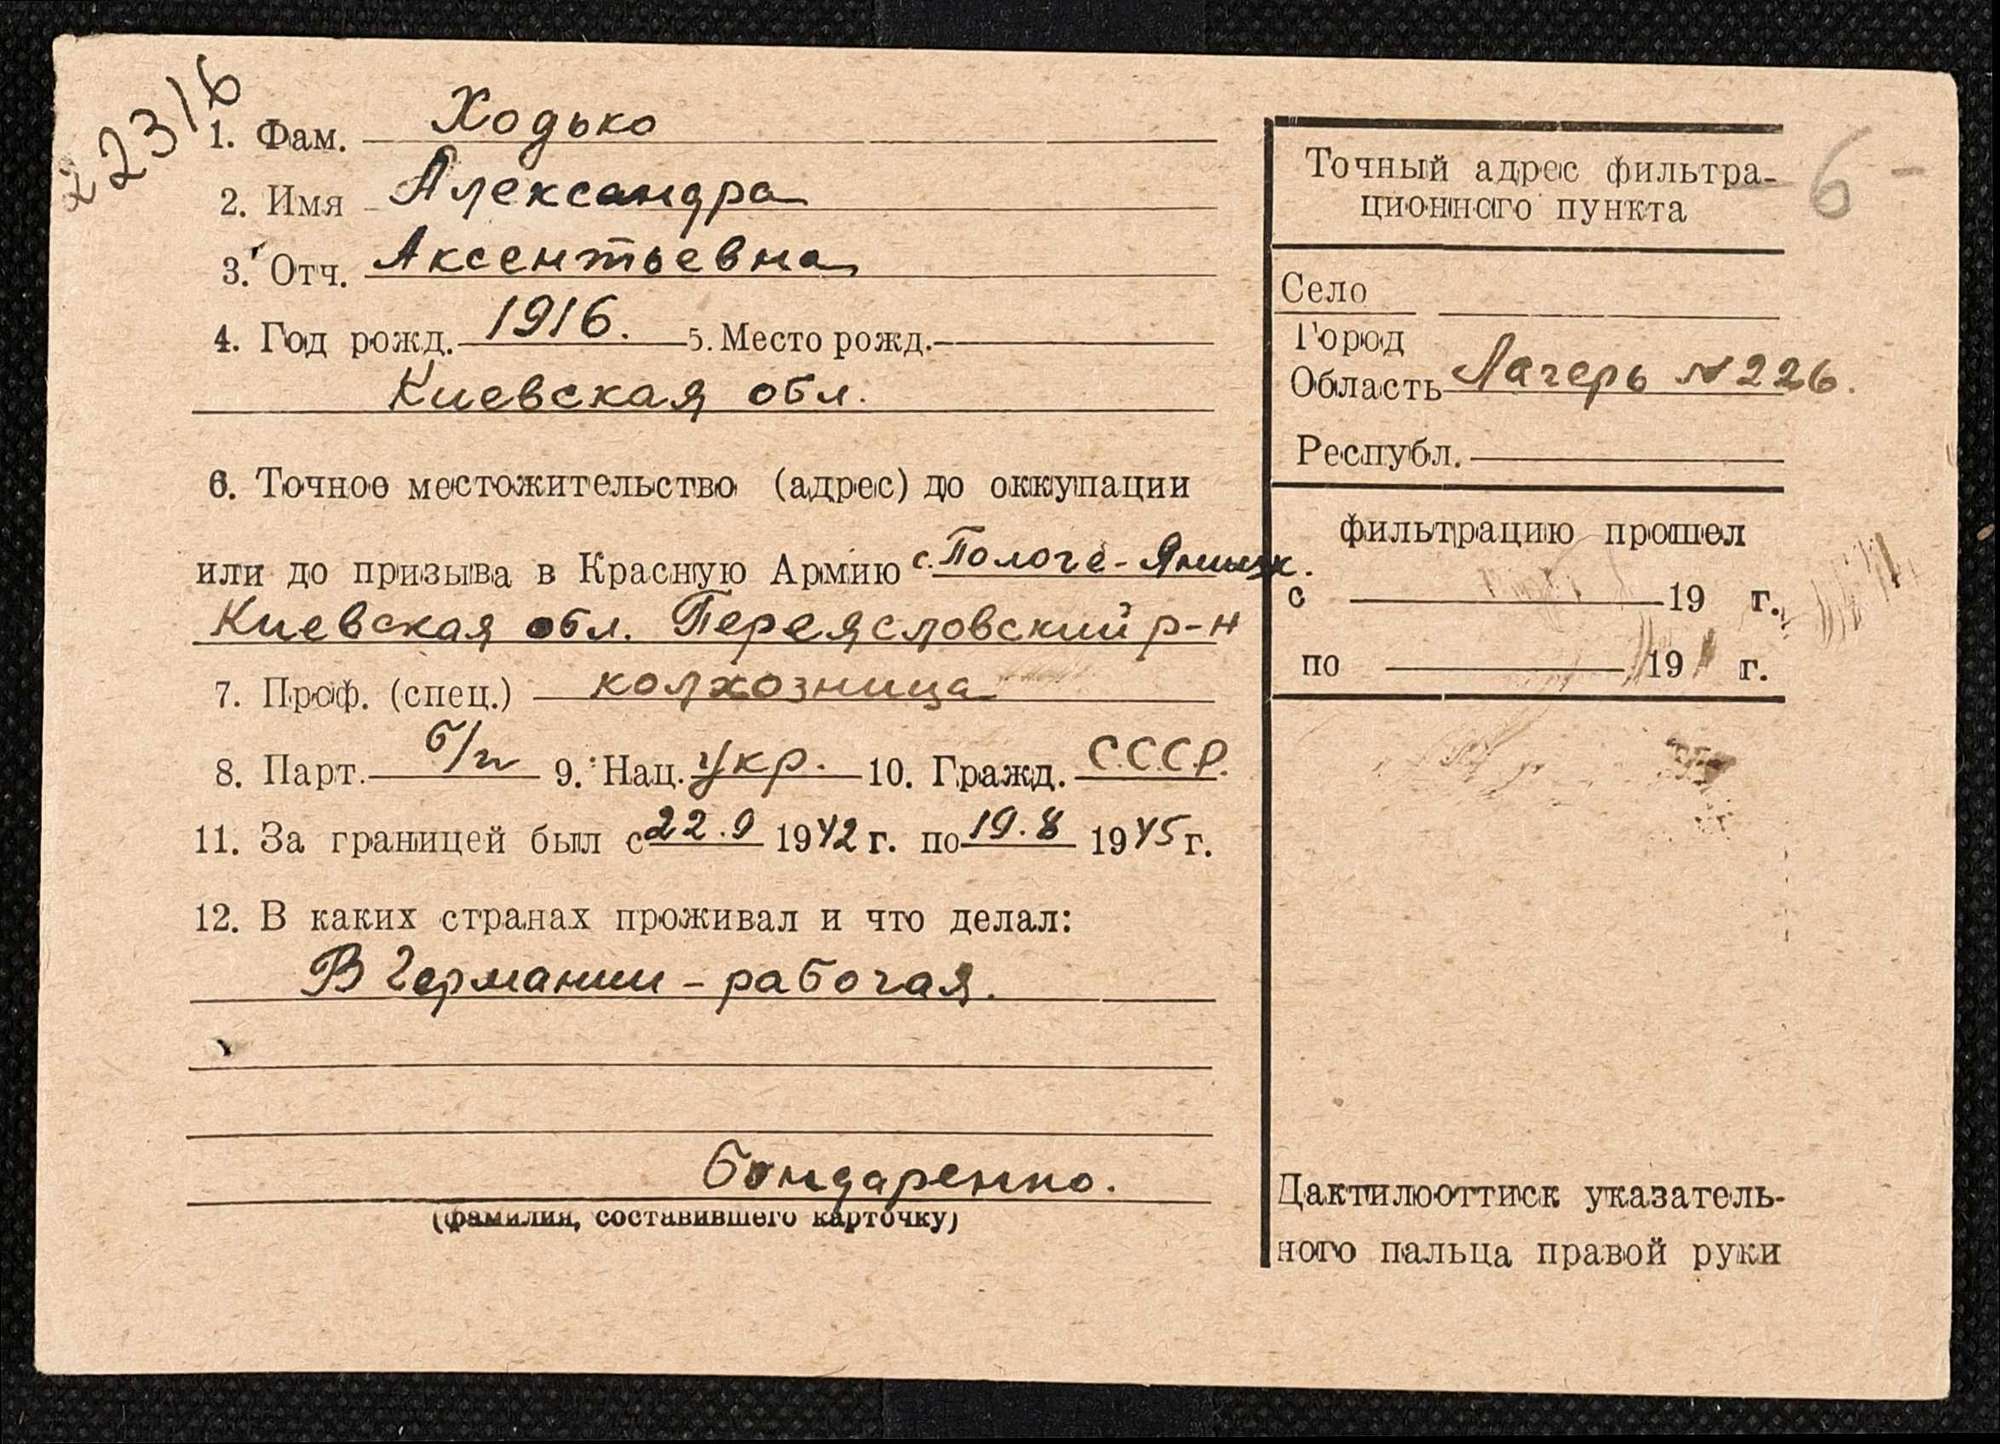 22316
1. Фам. Ходько
2. Имя Александра
3. Отч. Аксентьевна
4. Год рожд. 1916. 5. Место рожд.
Киевская обл.
6. Точное местожительство (адрес) до оккупации
или до призыва в Красную Армию с. Пологе-
Киевская обл. Переясловский р-н
7. Проф. (спец.) колхозница
8. Парт. б/п 9. Нац. укр. 10. Гражд. С.С.С.Р.
11. За границей был с 22.9 1942 г. по 19.8 1945 г.
12. В каких странах проживал и что делал:
В Германии - рабочая.
Бондаренко.
(фамилия, составившего карточку)
Точный адрес фильтра-
ционного пункта
6 -
Село
Город
Область Лагерь №226.
Республ.
фильтрацию прошел
с 19 г.
по 19 г.
Дактилооттиск указатель-
ного пальца правой руки